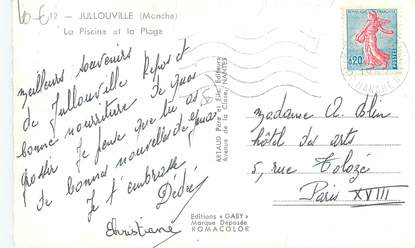 60-6
12 — JULLOUVILLE (Manche)
La Piscine et la Plage
meilleurs souvenirs
de Jullouville Repos et
bonne nourriture De quoi
grossir Je pense que tu as
de bonnes nouvelles de
Je t'embrasse
Dédé
Christiane
ARTAUD Père et Fils, Editeurs
Avenue de la Close, NANTES
Editions "GABY"
Marque Déposée
ROMACOLOR
0,20
MANCHE
madame A. Blin
hôtel des arts
5, rue Tolozé
Paris XVIII